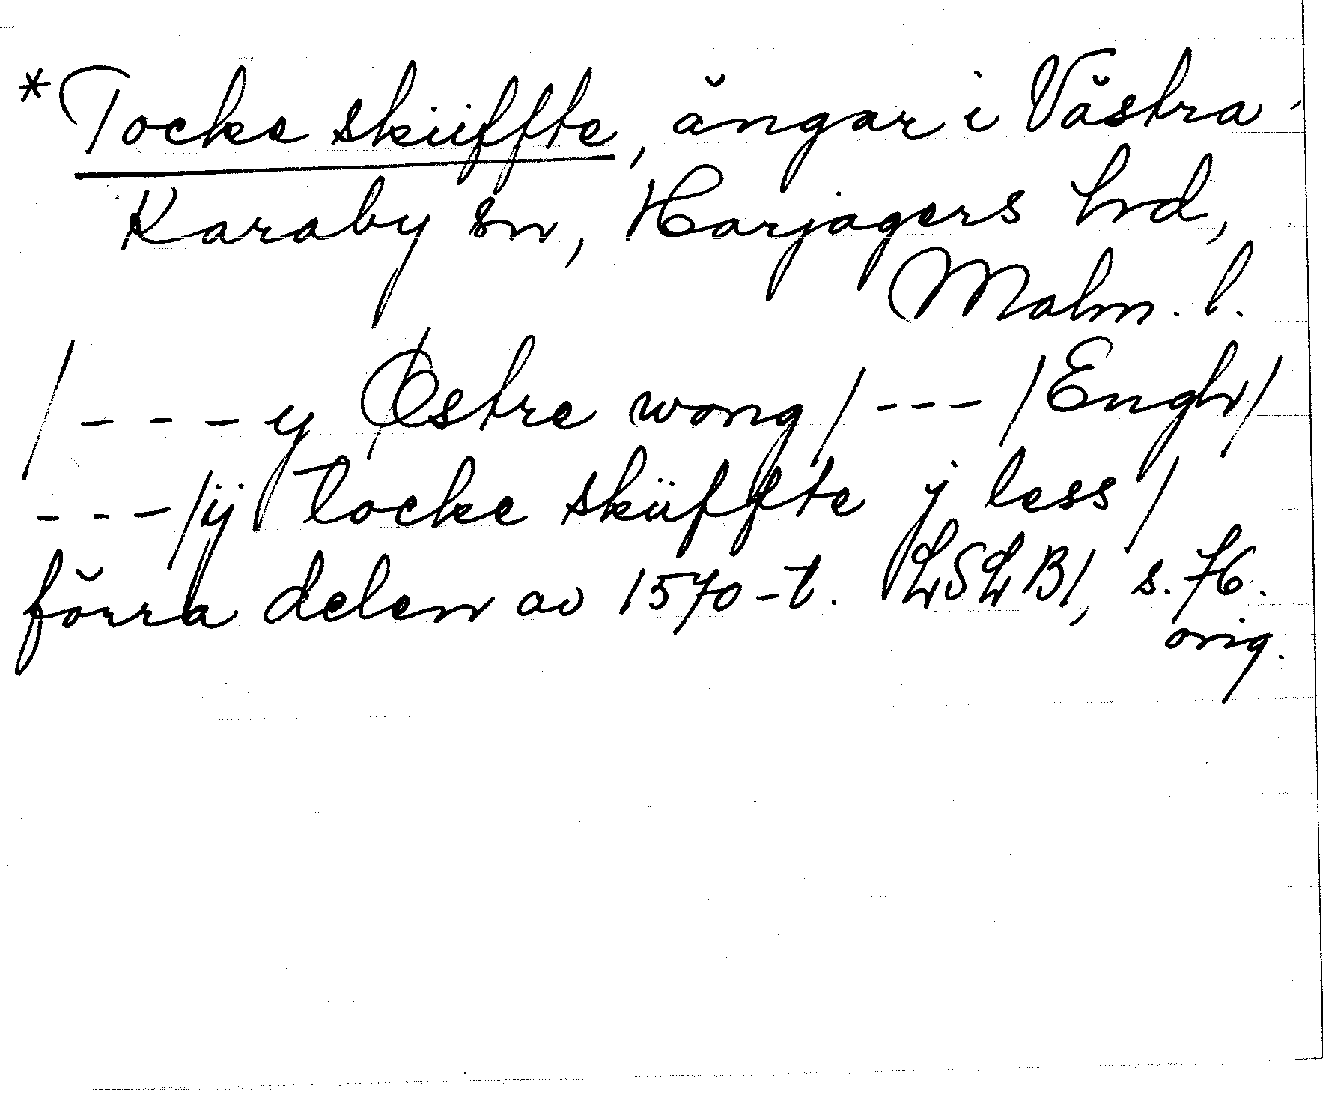 *Tocke skiiffte, ängar i Västra
Karaby sn, Harjagers hrd,
Malm. l.
/ - - - y Østre wong / - - - / Engh /
- - - / ij tocke skiiffte j less /
förra delen av 1570-t. LSLB1, s. 76.
orig.